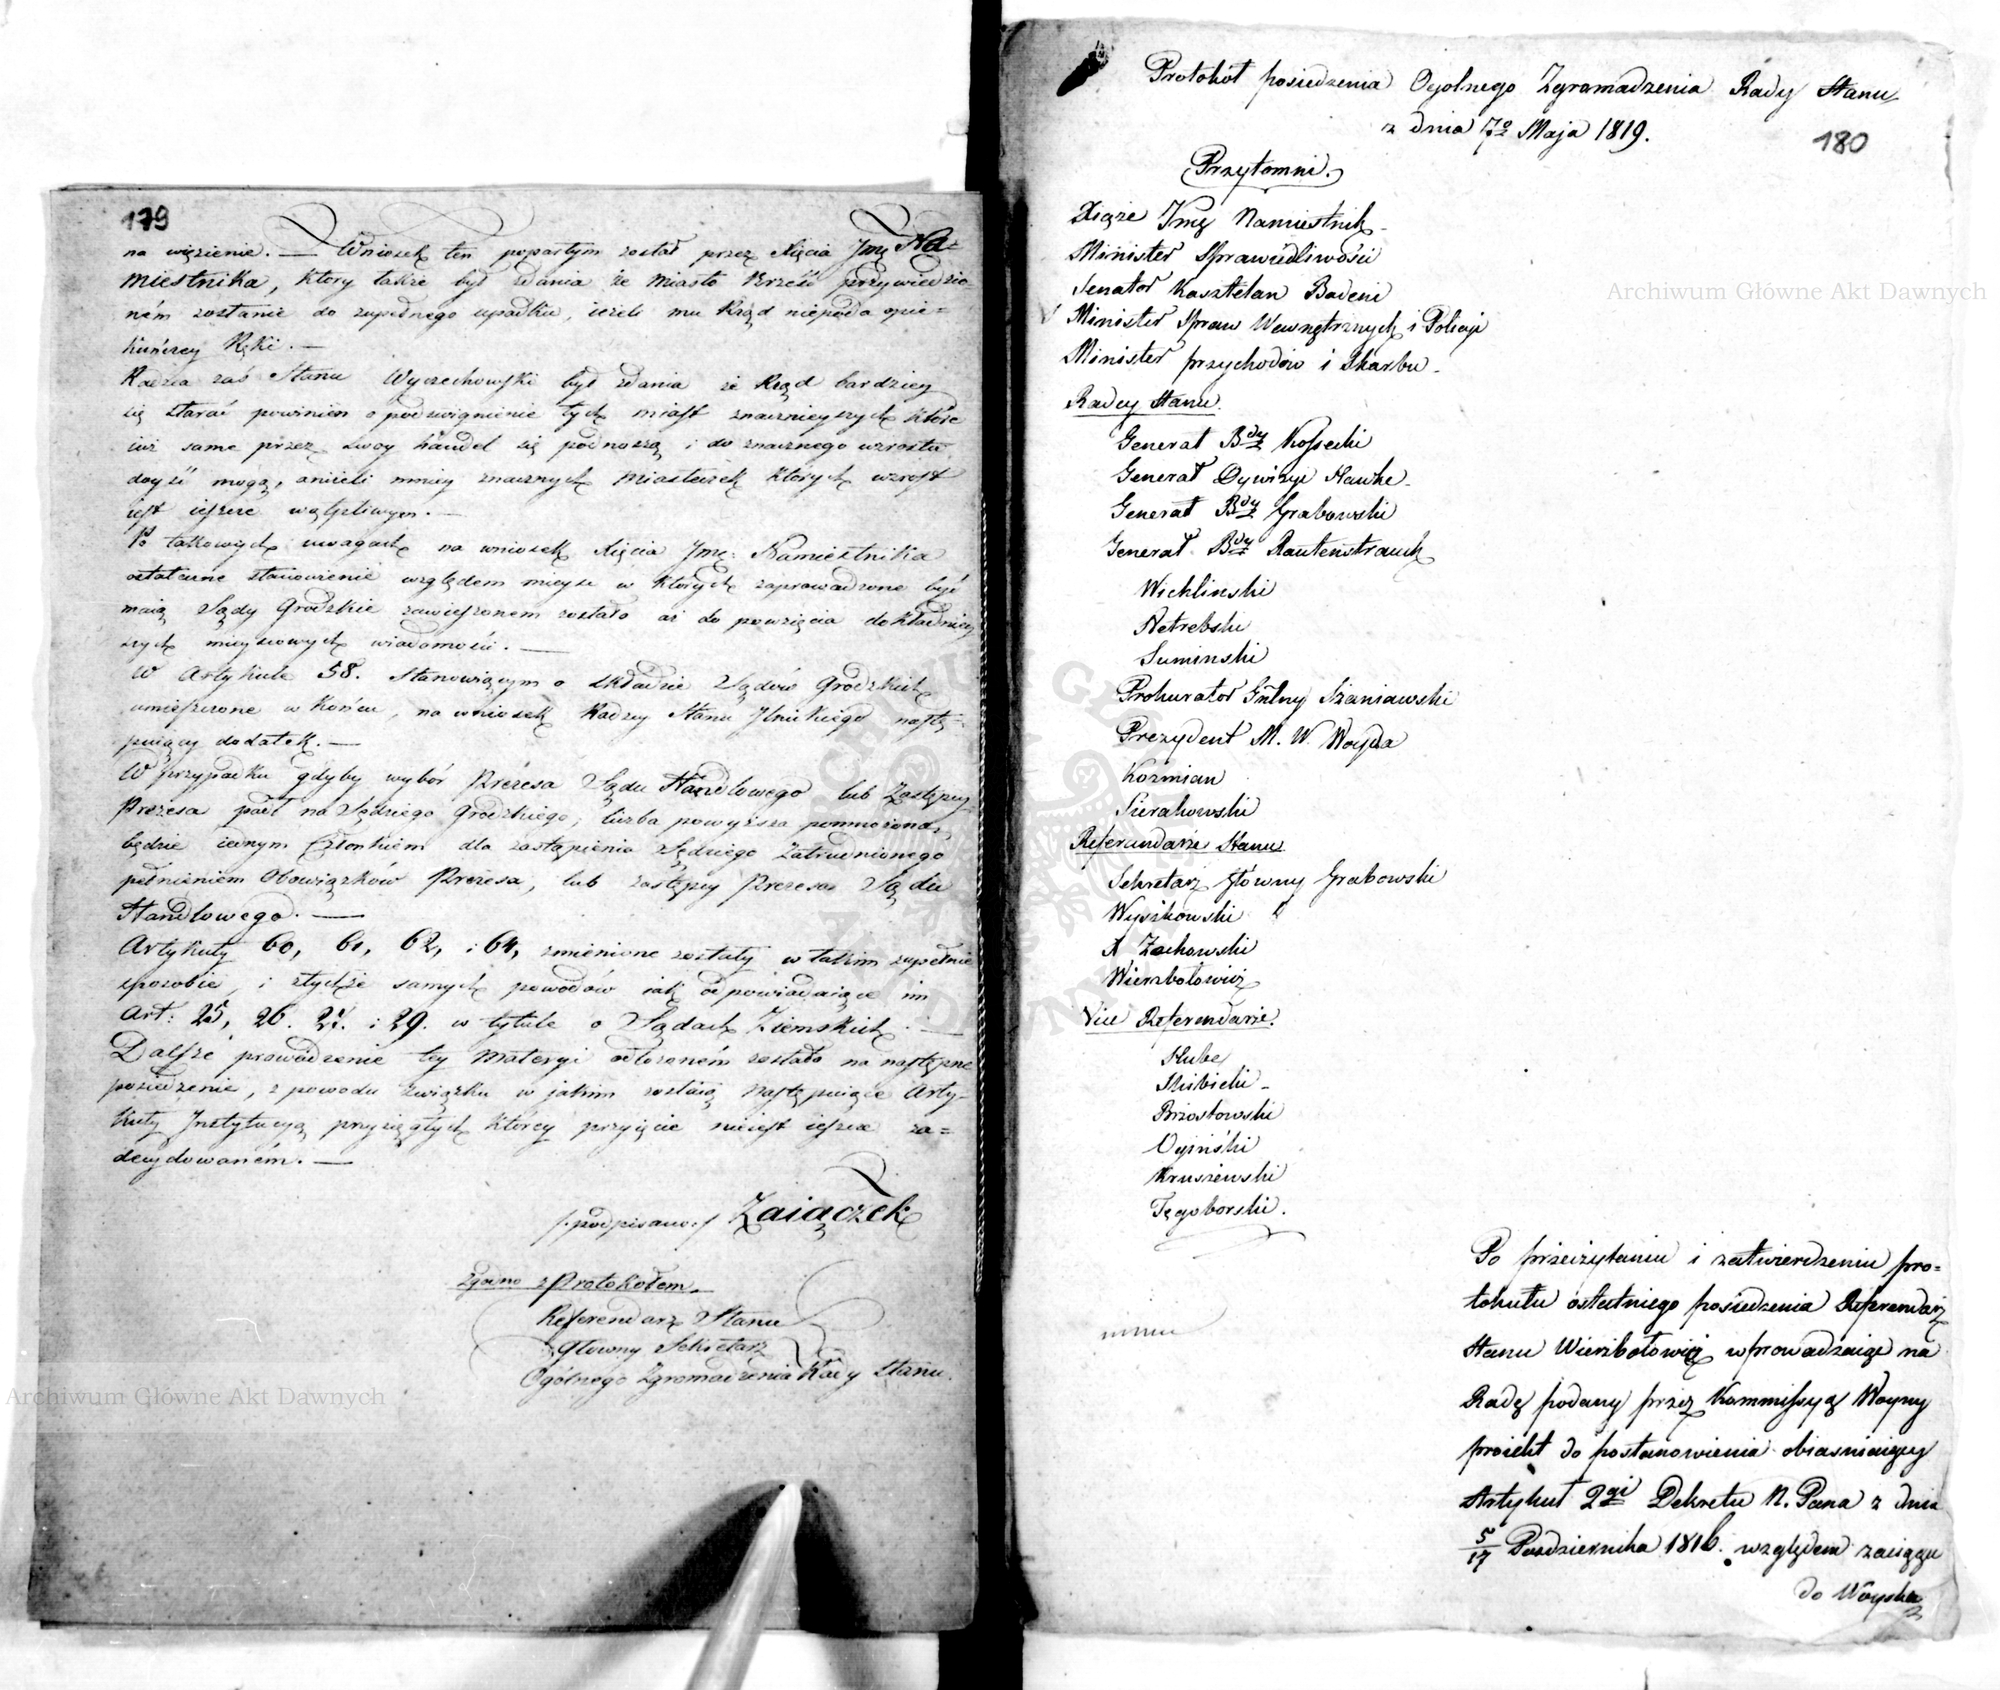 179
na więzienie. — Wniosek ten popartym został przez Xięcia Jmę Na=
miestnika, który także był zdania że Miasto Brześć przywiedzio
ném zostanie do zupełnego upadku, ieżeli mu Rząd niepoda opie=
kuńczey Ręki. —
Radca zaś Stanu Wyczechowski był zdania że Rząd bardziey
się starać powinien o podzwignienie tych miast znacznieyszych które
iuż same przez swoy handel się podnoszą i do znacznego wzrostu
doyść mogą, aniżeli mniey znacznych Miasteczek których wzrost
iest ieszcze wątpliwym. —
Po takowych uwagach na wniosek Xięcia Jmę: Namiestnika
ostateczne stanowienie względem mieysc w których zaprowadzone być
maią Sądy Grodzkie zawieszonem zostało aż do powzięcia dokładniey
szych mieyscowych wiadomości. —
W Artykule 58. Stanowiącym o składzie Sądów Grodzkich
umieszczone w końcu, na wniosek Radcy Stanu Ilnickiego nastę=
puiący dodatek. —
W przypadku gdyby wybór Prezesa Sądu Handlowego lub Zastępcy
Prezesa padł na Sędziego Grodzkiego, liczba powyższa pomnożona
będzie iednym Członkiem dla zastąpienia Sędziego zatrudnionego
pełnieniem Obowiązków Prezesa, lub zastępcy Prezesa Sądu
Handlowego. —
Artykuły 60, 61, 62, i 64, zmienione zostały w takim zupełnie
sposobie, i z tychże samych powodów iak odpowiadaiące im
Art: 25, 26. 27. i 29. w tytule o Sądach Ziemskich. —
Dalsze prowadzenie tey Materyi odłożoném zostało na następne
posiedzenie, z powodu związku w jakim zostaią następuiące Arty=
kuły z Instytucyą przysięgłych którey przyięcie nieiest ieszcze za=
decydowaném. —
/:podpisano:/ Zaiączek
Zgodno z Protokołem.
Referendarz Stanu
Główny Sekretarz
Ogólnego Zgromadzenia Rady Stanu.
Archiwum Główne Akt Dawnych
Protokół posiedzenia Ogolnego Zgromadzenia Rady Stanu
z dnia 7º Maja 1819.
180
Przytomni.
Xiąże Jmę Namiestnik
Minister Sprawiedliwości
Senator Kasztelan Badeni
Minister Spraw Wewnętrznych i Policyi
Minister przychodów i Skarbu
Radcy Stanu.
Generał Bdy Kossecki
Generał Dywizyi Hauke
Generał Bdy Grabowski
Generał Bdy Rautenstrauch
Wichliński
Netrebski
Sumiński
Prokurator Gnlny Szaniawski
Prezydent M. W. Woyda
Kozmian
Sierakowski
Referendarze Stanu
Sekretarz Główny Grabowski
Wyszkowski
X Żochowski
Wierzbołowicz
Vice Referendarze.
Hube
Skibicki
Brzostowski
Ogiński
Kruszewski
Tęgoborski.
Po przeczytaniu i zatwierdzeniu pro=
tokułu ostatniego posiedzenia Referendarz
Stanu Wierzbołowicz wprowadzaiąc na
Radę podany przez Kommissyą Woyny
proiekt do postanowienia obiasniaiący
Artykuł 2gi Dekretu N. Pana z dnia
5/17 Pazdziernika 1816. względem zaciągu
do Woyska
Archiwum Główne Akt Dawnych